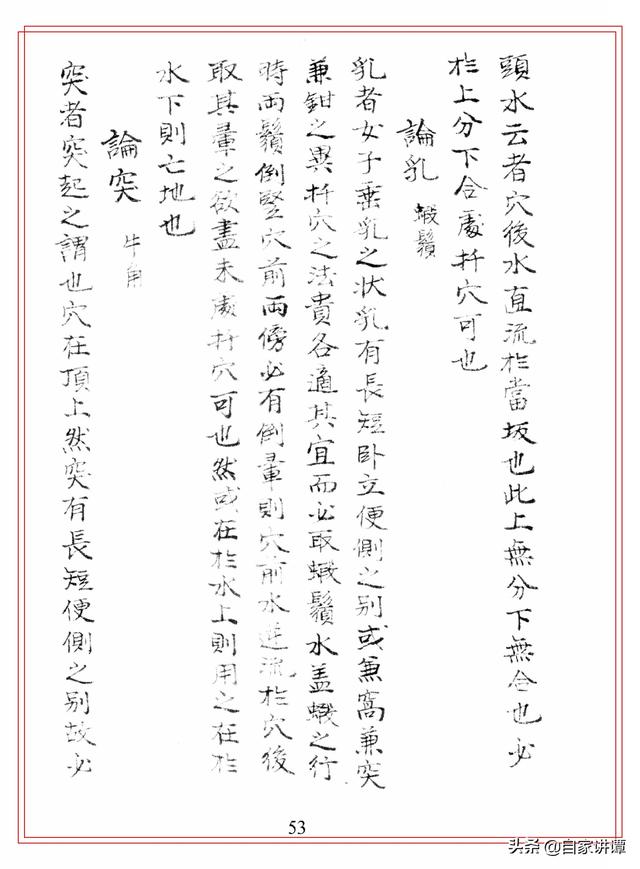 頭水云者穴後水直流於當坂也此上無分下無合也必
於上分下合處扦穴可也
論乳 蝦鬚
乳者女子垂乳之状乳有長短卧立便側之别或兼窩兼突
兼鉗之異扦穴之法貴各適其宜而必取蝦鬚水盖蝦之行
時两鬚倒竪穴前两傍必有倒暈則穴前水逆流於穴後
取其暈之欲盡未處扦穴可也然或在於水上則用之在於
水下則亡地也
論突 牛角
突者突起之謂也穴在頂上然突有長短便側之别故必
53
头条 @自家讲谭